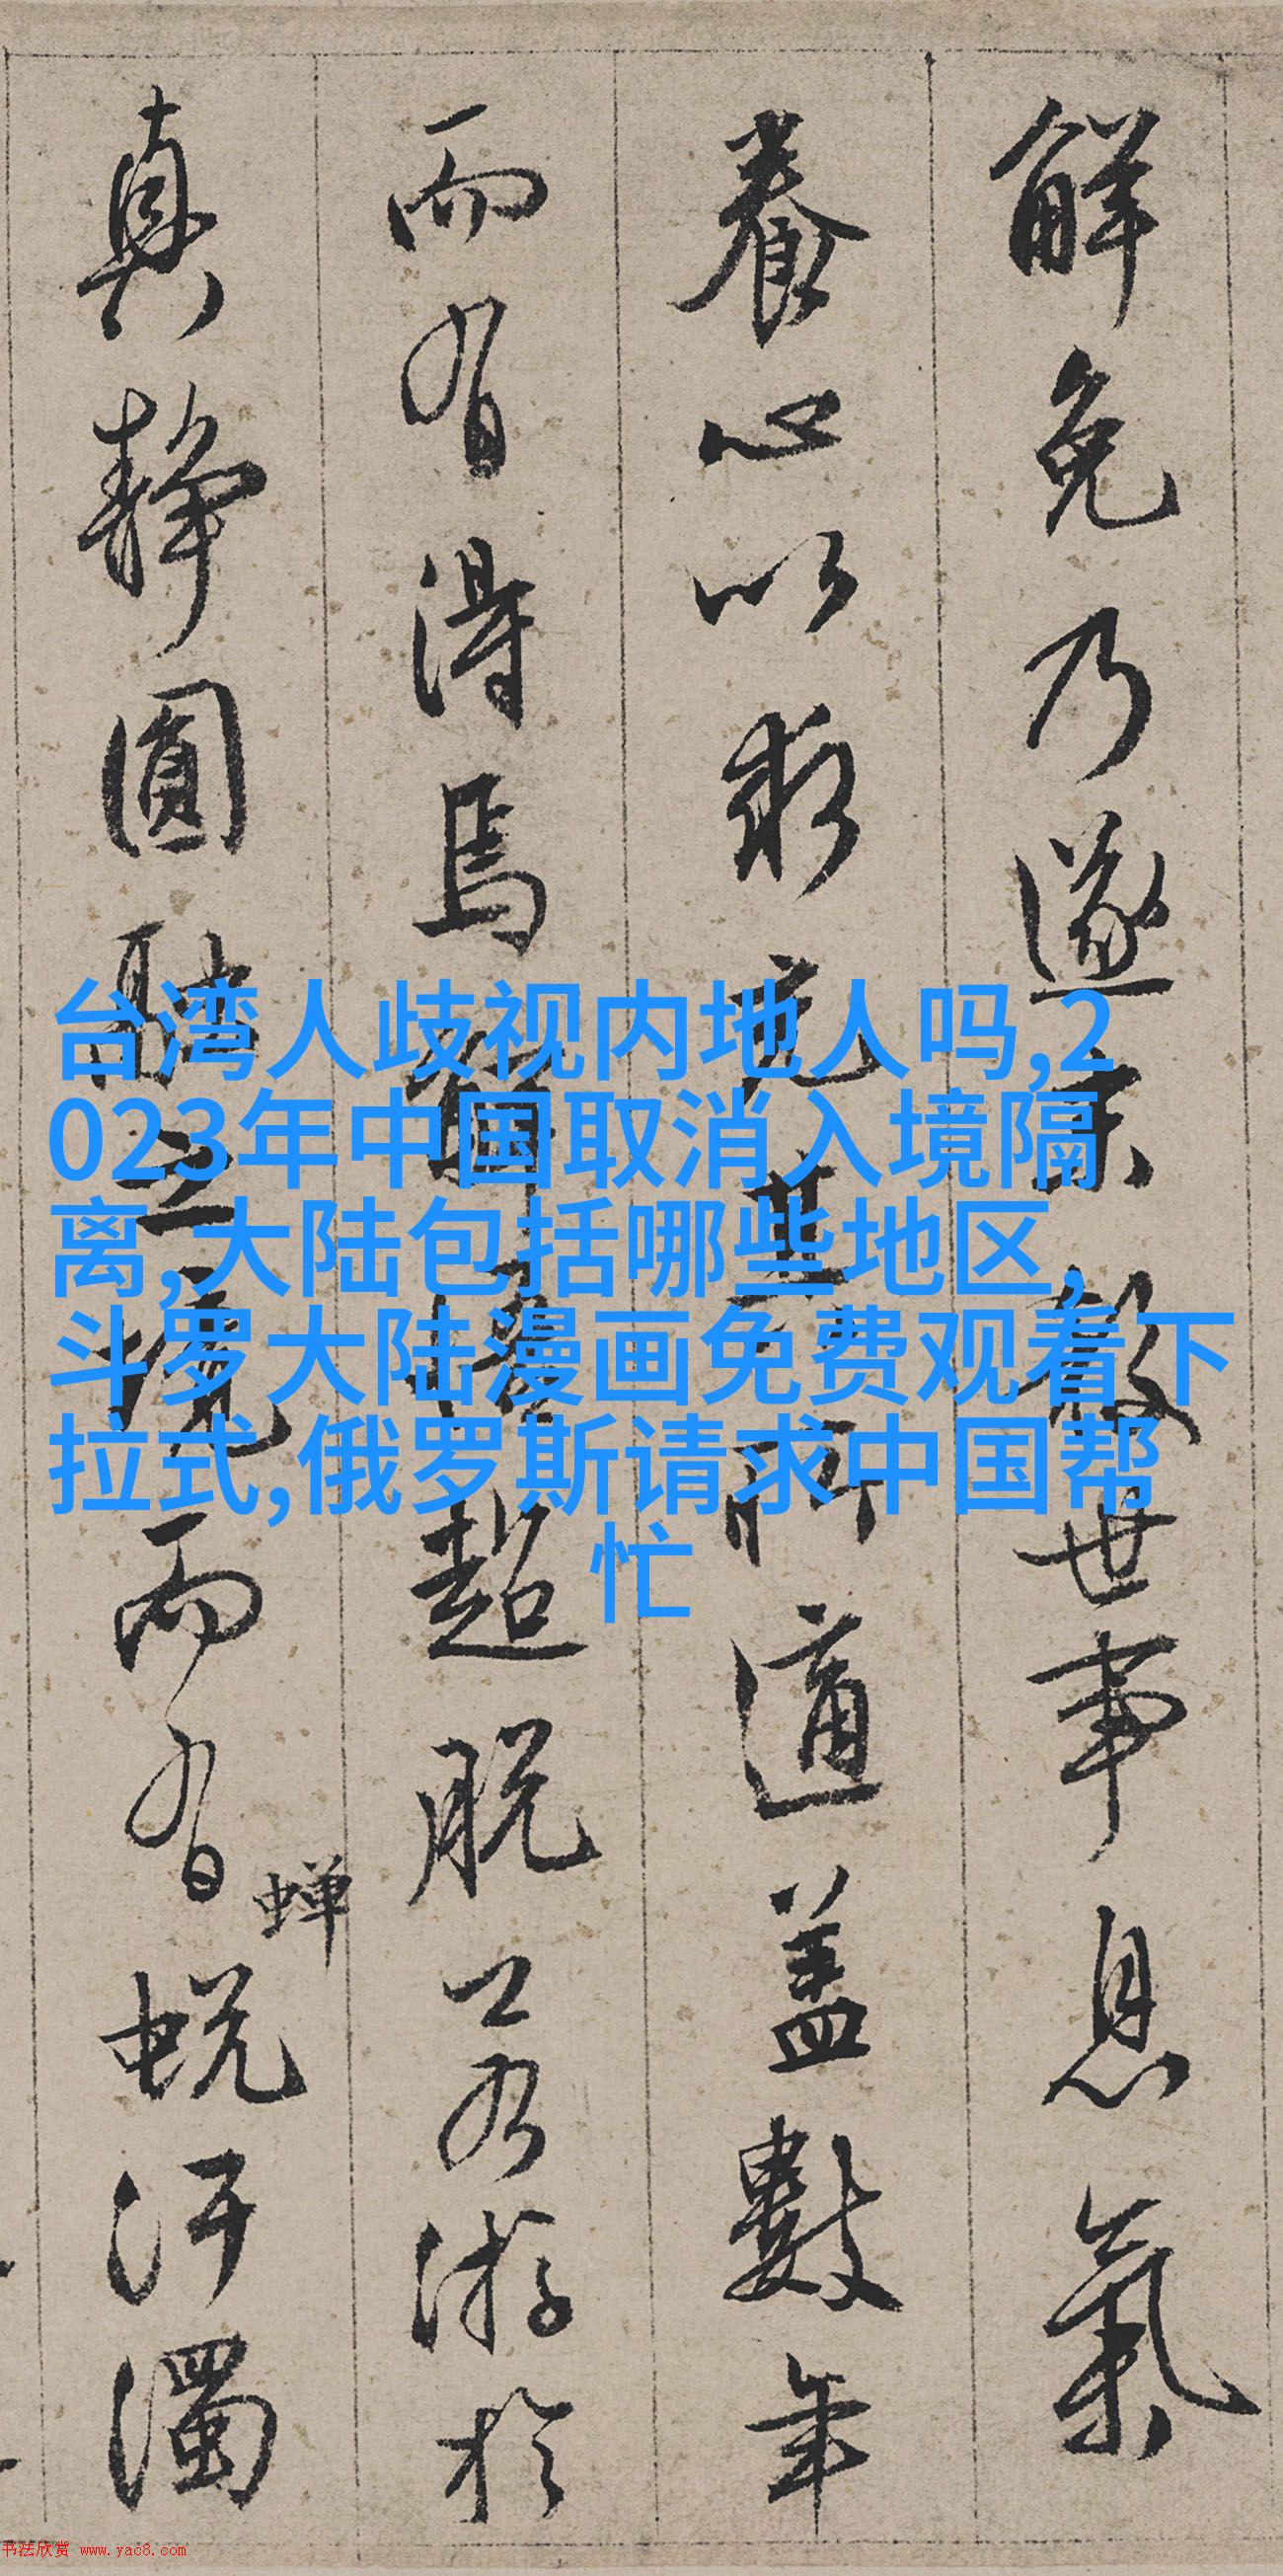 解免乃遂求數世事息氣
養心以求克其所適蓋數年
而有得焉超脫又若游於
真靜圓融之境而有蟬蛻汙濁
台湾人歧视内地人吗,2
023年中国取消入境隔
离,大陆包括哪些地区,
斗罗大陆漫画免费观看下
拉式,俄罗斯请求中国帮
忙
书法欣赏 www.yac8.com